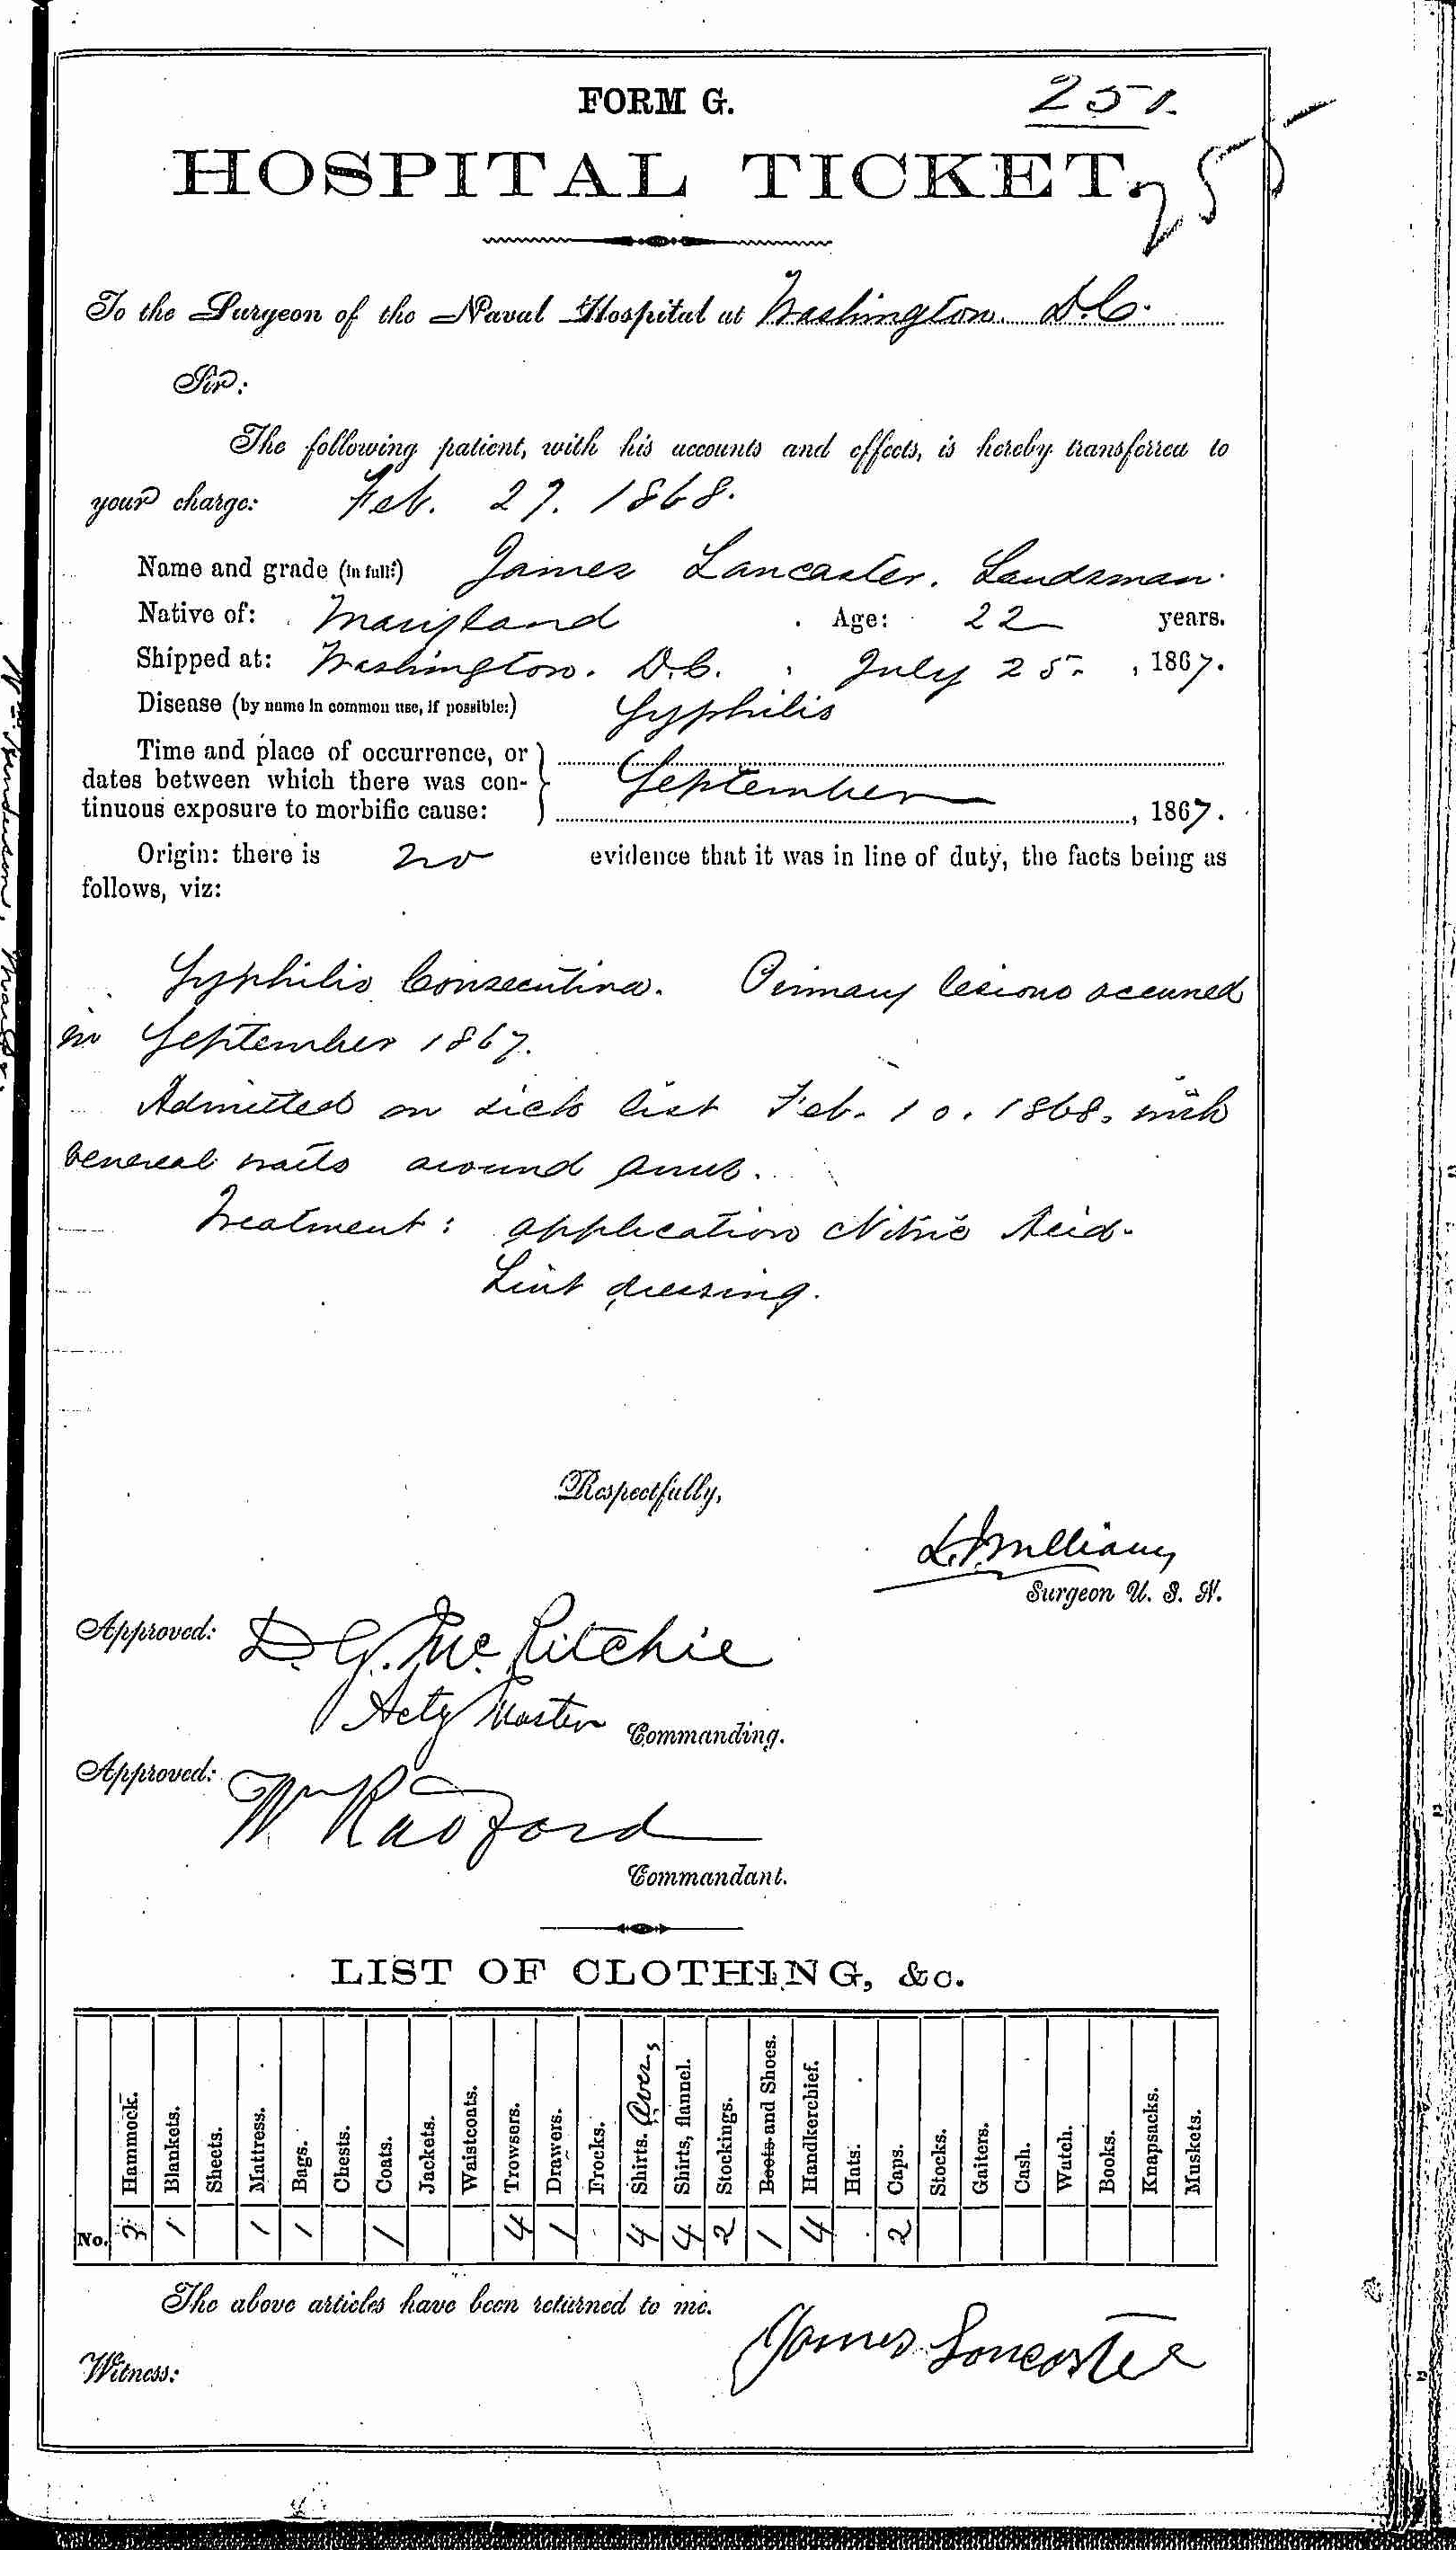 FORM G.
251.
HOSPITAL TICKET.
25
To the Surgeon of the Naval Hospital at Washington. D.C.
Sir:
The following patient, with his accounts and effects, is hereby transferred to
your charge: Feb. 27. 1868.
Name and grade (in full:) James Lancaster. Landsman.
Native of: Maryland Age: 22 years.
Shipped at: Washington. D.C. July 25, 1867.
Disease (by name in common use, if possible:) Syphilis
Time and place of occurrence, or
dates between which there was con-
tinuous exposure to morbific cause: September , 1867.
Origin: there is no evidence that it was in line of duty, the facts being as
follows, viz:
Syphilis Consecutiva. Primary lesions occurred
in September 1867.
Admitted on sick list Feb. 10. 1868, with
venereal warts around anus.
Treatment: application Nitric Acid.
Lint dressing.
Respectfully,
Surgeon U. S. N.
Approved: D. G. McRitchie
Actg Master Commanding.
Approved: Wm Radford
Commandant.
LIST OF CLOTHING, &c.
Hammock. Blankets. Sheets. Mattress. Bags. Chests. Coats. Jackets. Waistcoats. Trowsers. Drawers. Frocks. Shirts. Over, Shirts, flannel. Stockings. Boots and Shoes. Handkerchief. Hats. Caps. Stocks. Gaiters. Cash. Watch. Books. Knapsacks. Muskets.
No. 2 1 1 1 1 4 1 4 4 2 1 4 2
The above articles have been returned to me.
James Lancaster
Witness: